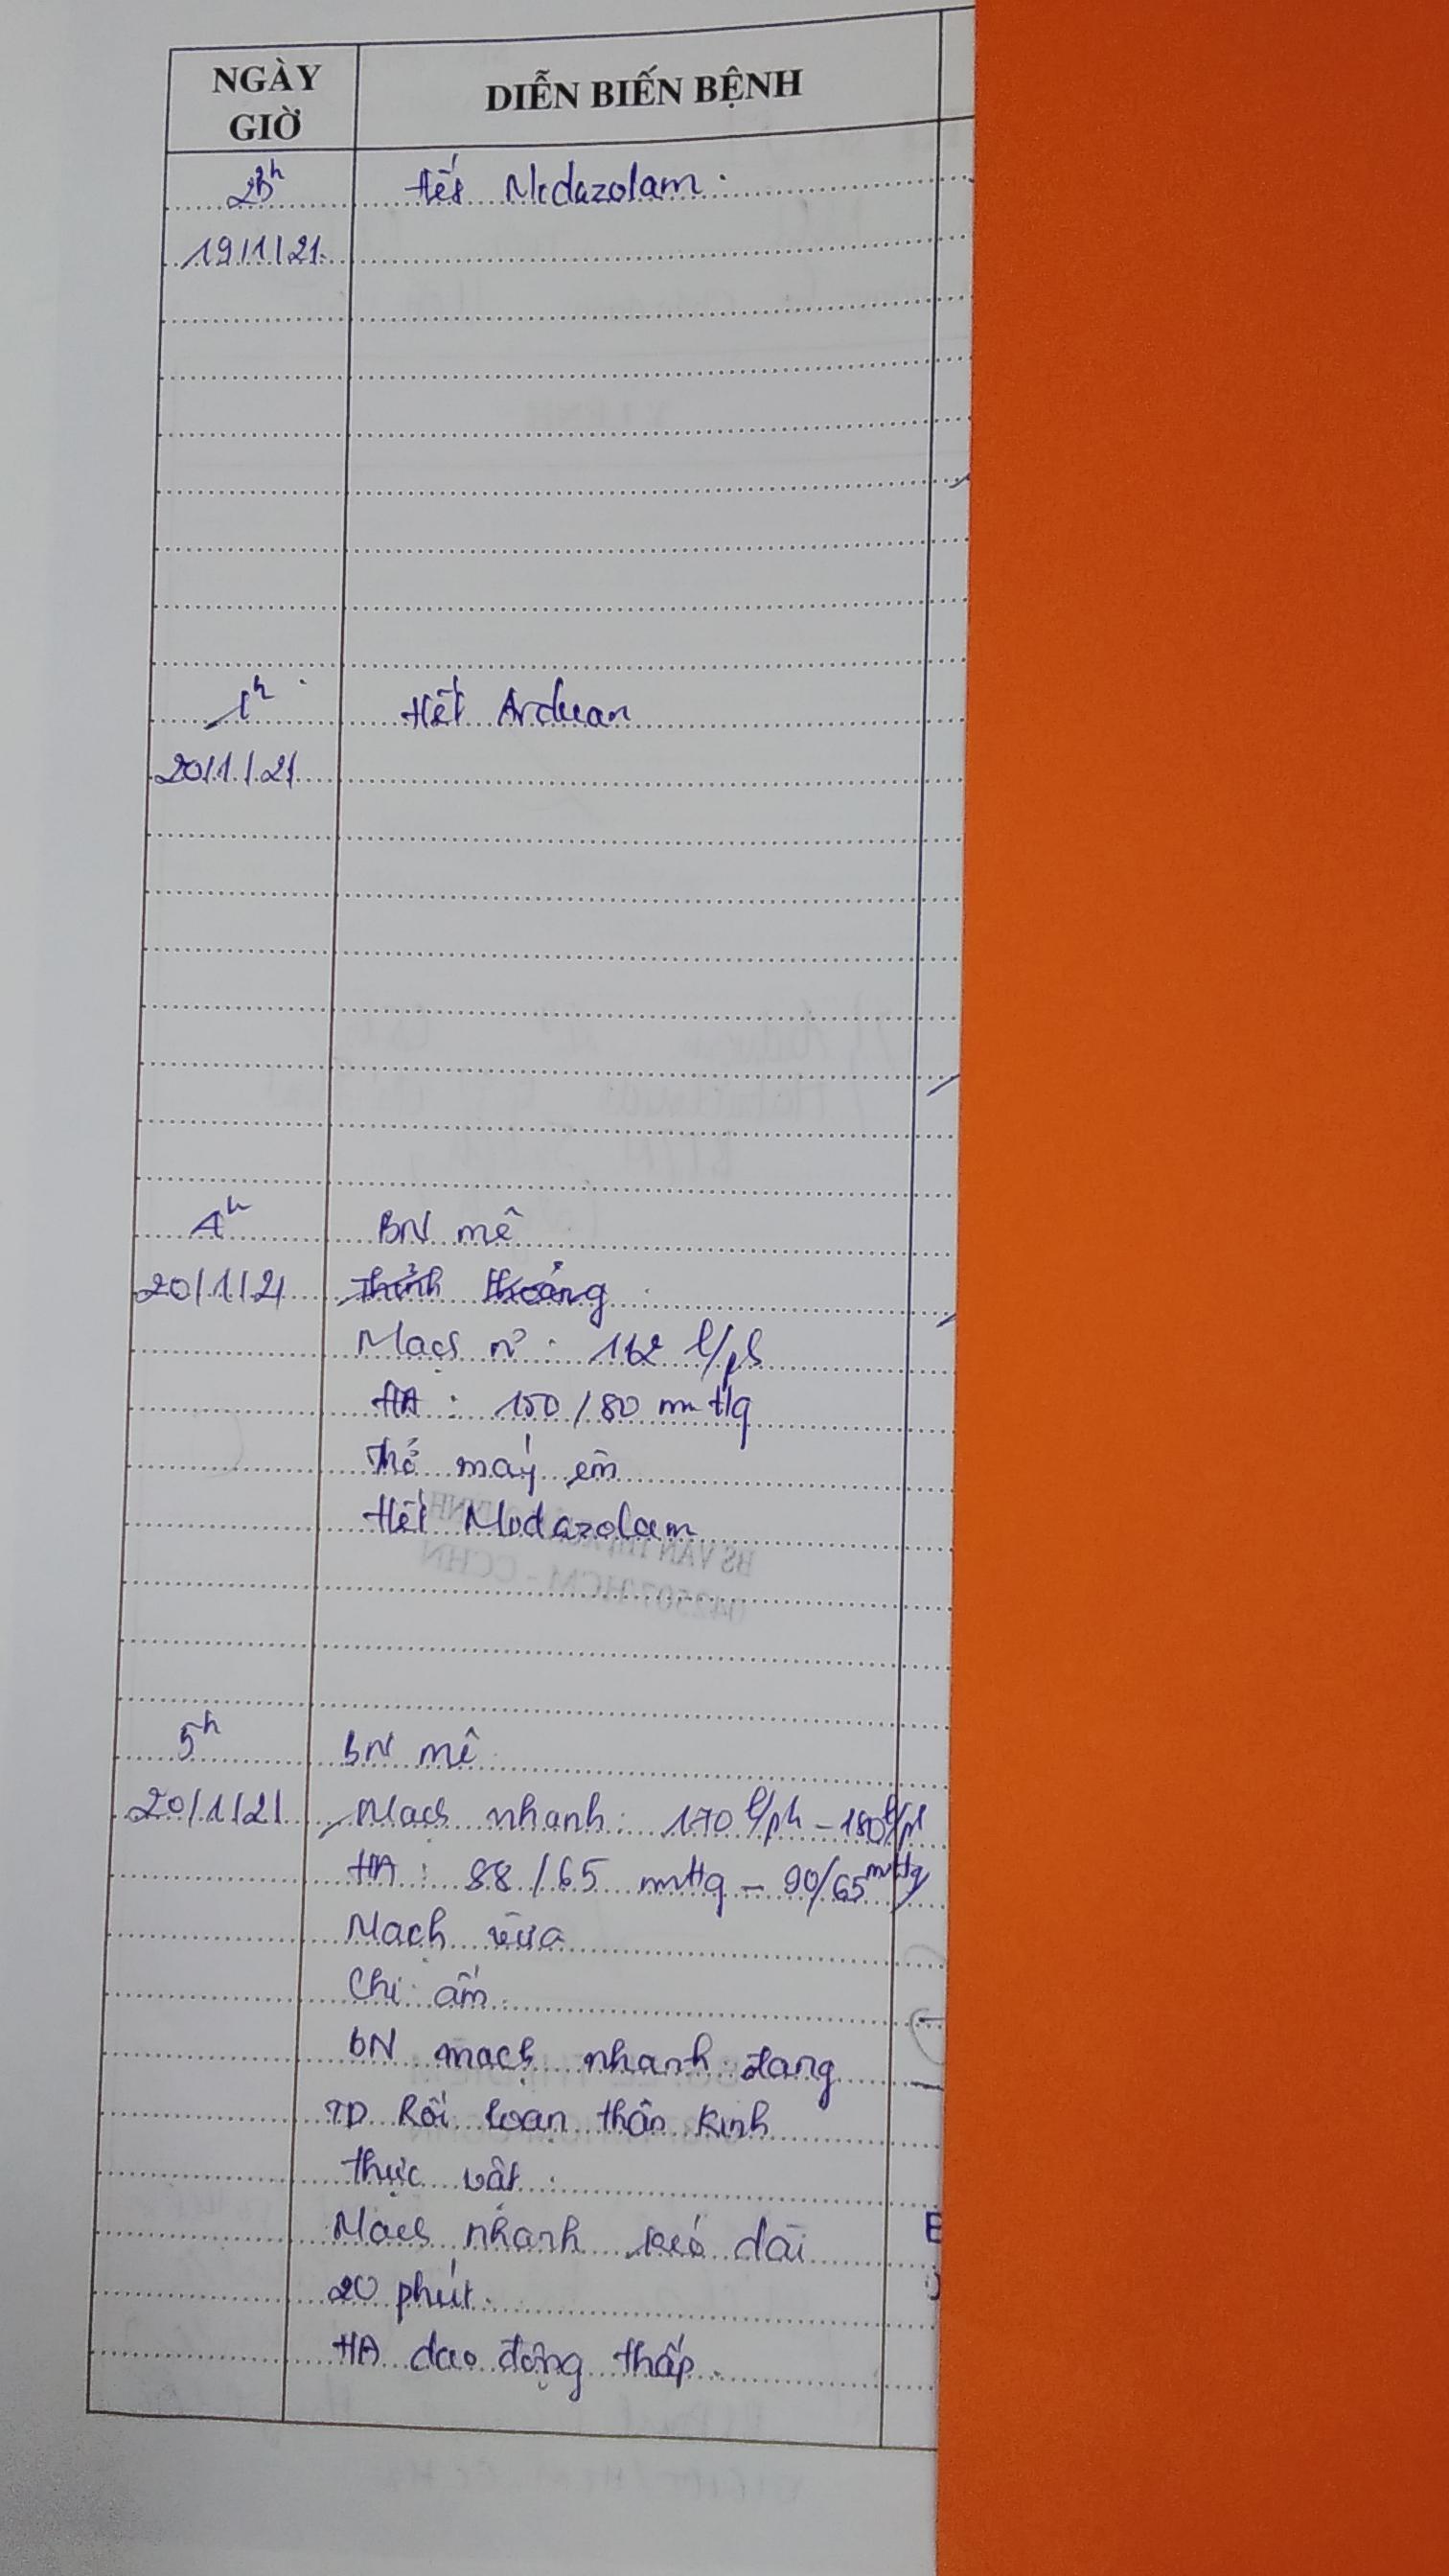 NGÀY GIỜ
DIỄN BIẾN BỆNH
23h Hết Midazolam.
19/1/21
1h Hết Arduan
20/1/21
4h BN mê
20/1/21 Thỉnh thoảng
Mạch : 162 l/ph
HA : 150/80 mmHg
Thở máy êm
Hết Midazolam
5h BN mê
20/1/21 Mạch nhanh: 170 l/ph - 180 l/ph
HA : 88/65 mmHg - 90/65 mmHg
Mạch vừa
Chi ấm
BN mạch nhanh đang
TD Rối loạn thần kinh
thực vật.
Mạch nhanh kéo dài
20 phút.
HA dao động thấp.